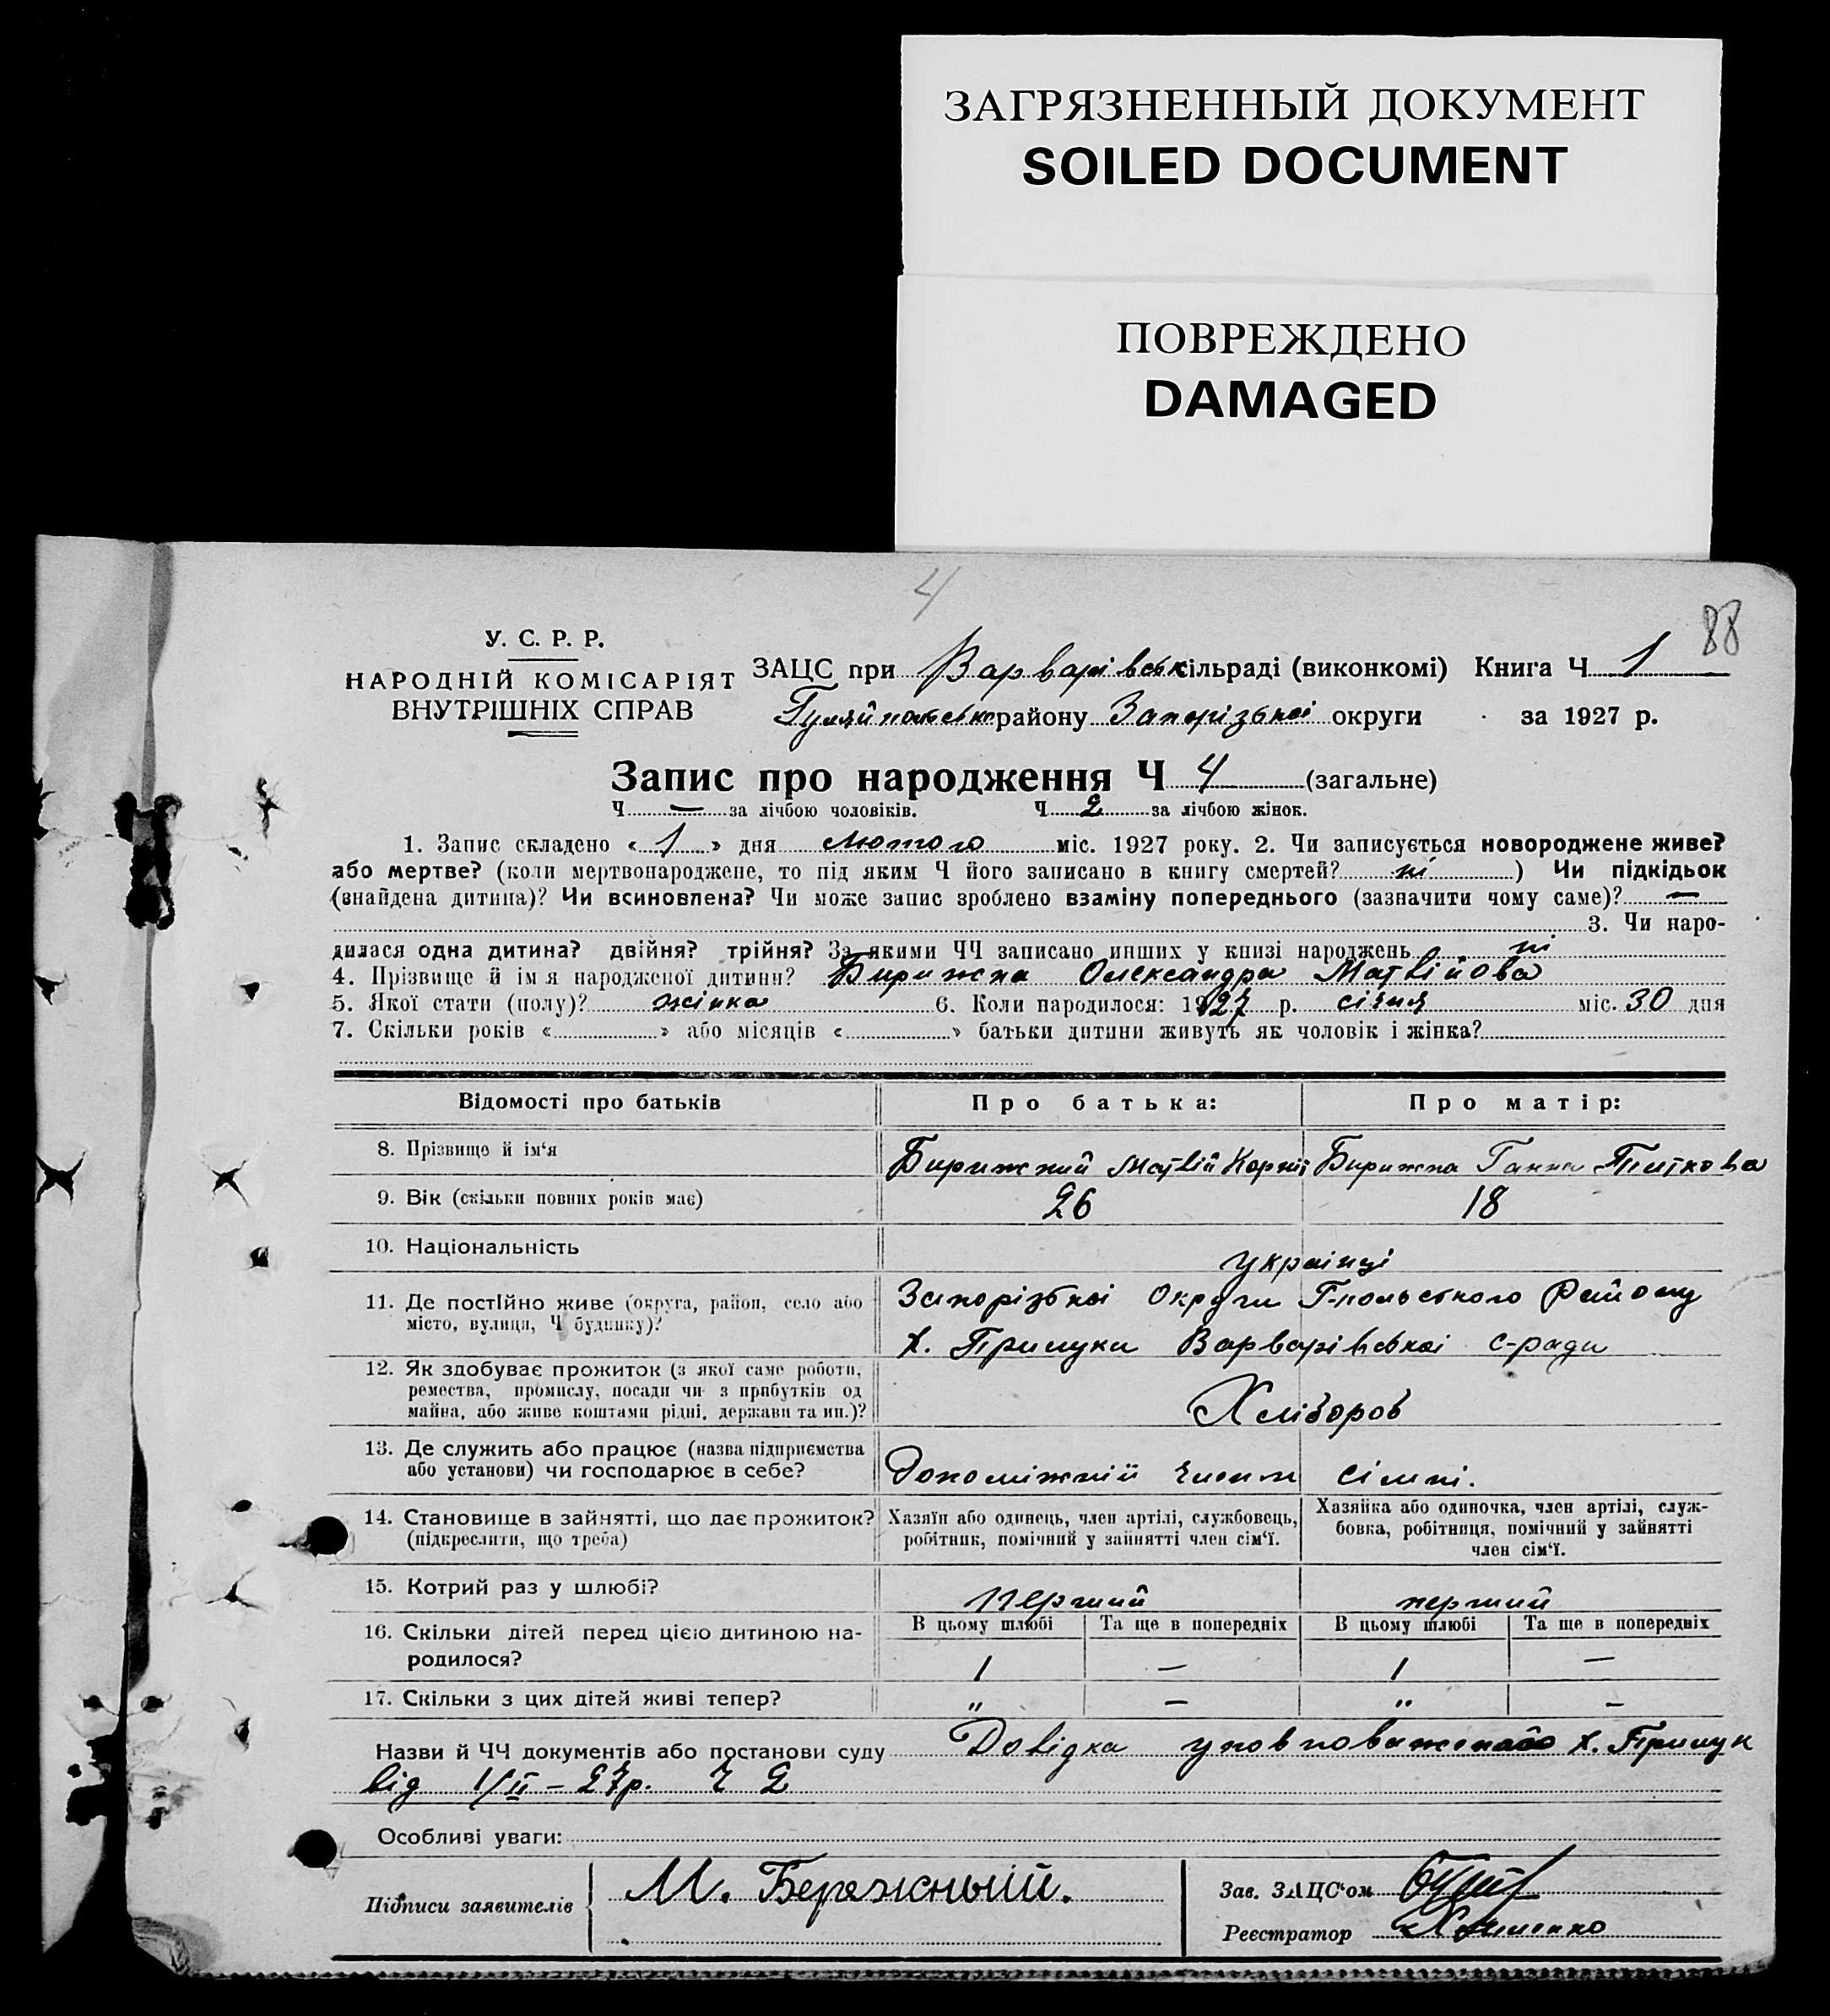 ЗАГРЯЗНЕННЫЙ ДОКУМЕНТ
SOILED DOCUMENT
ПОВРЕЖДЕНО
DAMAGED
4
88
У. С. Р. Р.
НАРОДНІЙ КОМІСАРІЯТ
ВНУТРІШНІХ СПРАВ
ЗАЦС при Варварівськ сільраді (виконкомі) Книга Ч 1
Гуляйпольськ району Запорізької округи за 1927 р.
Запис про народження Ч 4 (загальне)
Ч — за лічбою чоловіків. Ч 2 за лічбою жінок.
1. Запис складено « 1 » дня лютого міс. 1927 року. 2. Чи записується новороджене живе?
або мертве? (коли мертвонароджене, то під яким Ч його записано в книгу смертей? ні ) Чи підкідьок
(знайдена дитина)? Чи всиновлена? Чи може запис зроблено взаміну попереднього (зазначити чому саме)? —
3. Чи наро-
дилася одна дитина? двійня? трійня? За якими ЧЧ записано инших у книзі народжень ні
4. Прізвище й ім я народженої дитини? Бирижна Олександра Матвійова
5. Якої стати (полу)? жінка 6. Коли народилося: 1927 р. січня міс. 30 дня
7. Скільки років « » або місяців « » батьки дитини живуть як чоловік і жінка?
Відомості про батьків Про батька: Про матір:
8. Прізвище й ім‘я Бирижний Матвій Корній Бирижна Ганна
9. Вік (скільки повних років має) 26 18
10. Національність українці
11. Де постійно живе (округа, район, село або Запорізької Округи Г-польського Району
місто, вулиця, Ч будинку)? х. Прилуки Варварівської с-ради
12. Як здобуває прожиток (з якої саме роботи,
ремества, промислу, посади чи з прибутків од
майна, або живе коштами рідні, держави та ин.)? Хлібороб
13. Де служить або працює (назва підприємства
або установи) чи господарює в себе? Допоміжній член сімні.
14. Становище в зайнятті, що дає прожиток? Хазяїн або одинець, член артілі, службовець, Хазяйка або одиночка, член артілі, служ-
(підкреслити, що треба) робітник, помічний у зайнятті член сім‘ї. бовка, робітниця, помічний у зайнятті
член сім‘ї.
15. Котрий раз у шлюбі? перший перший
16. Скільки дітей перед цією дитиною на- В цьому шлюбі Та ще в попередніх В цьому шлюбі Та ще в попередніх
родилося? 1 — 1 —
17. Скільки з цих дітей живі тепер? „ — „ —
Назви й ЧЧ документів або постанови суду Довідка уповноваженого х. Прилук
від 1/II – 27р. Ч 2
Особливі уваги:
Підписи заявителів М. Бережный.
Зав. ЗАЦС‘ом
Реєстратор